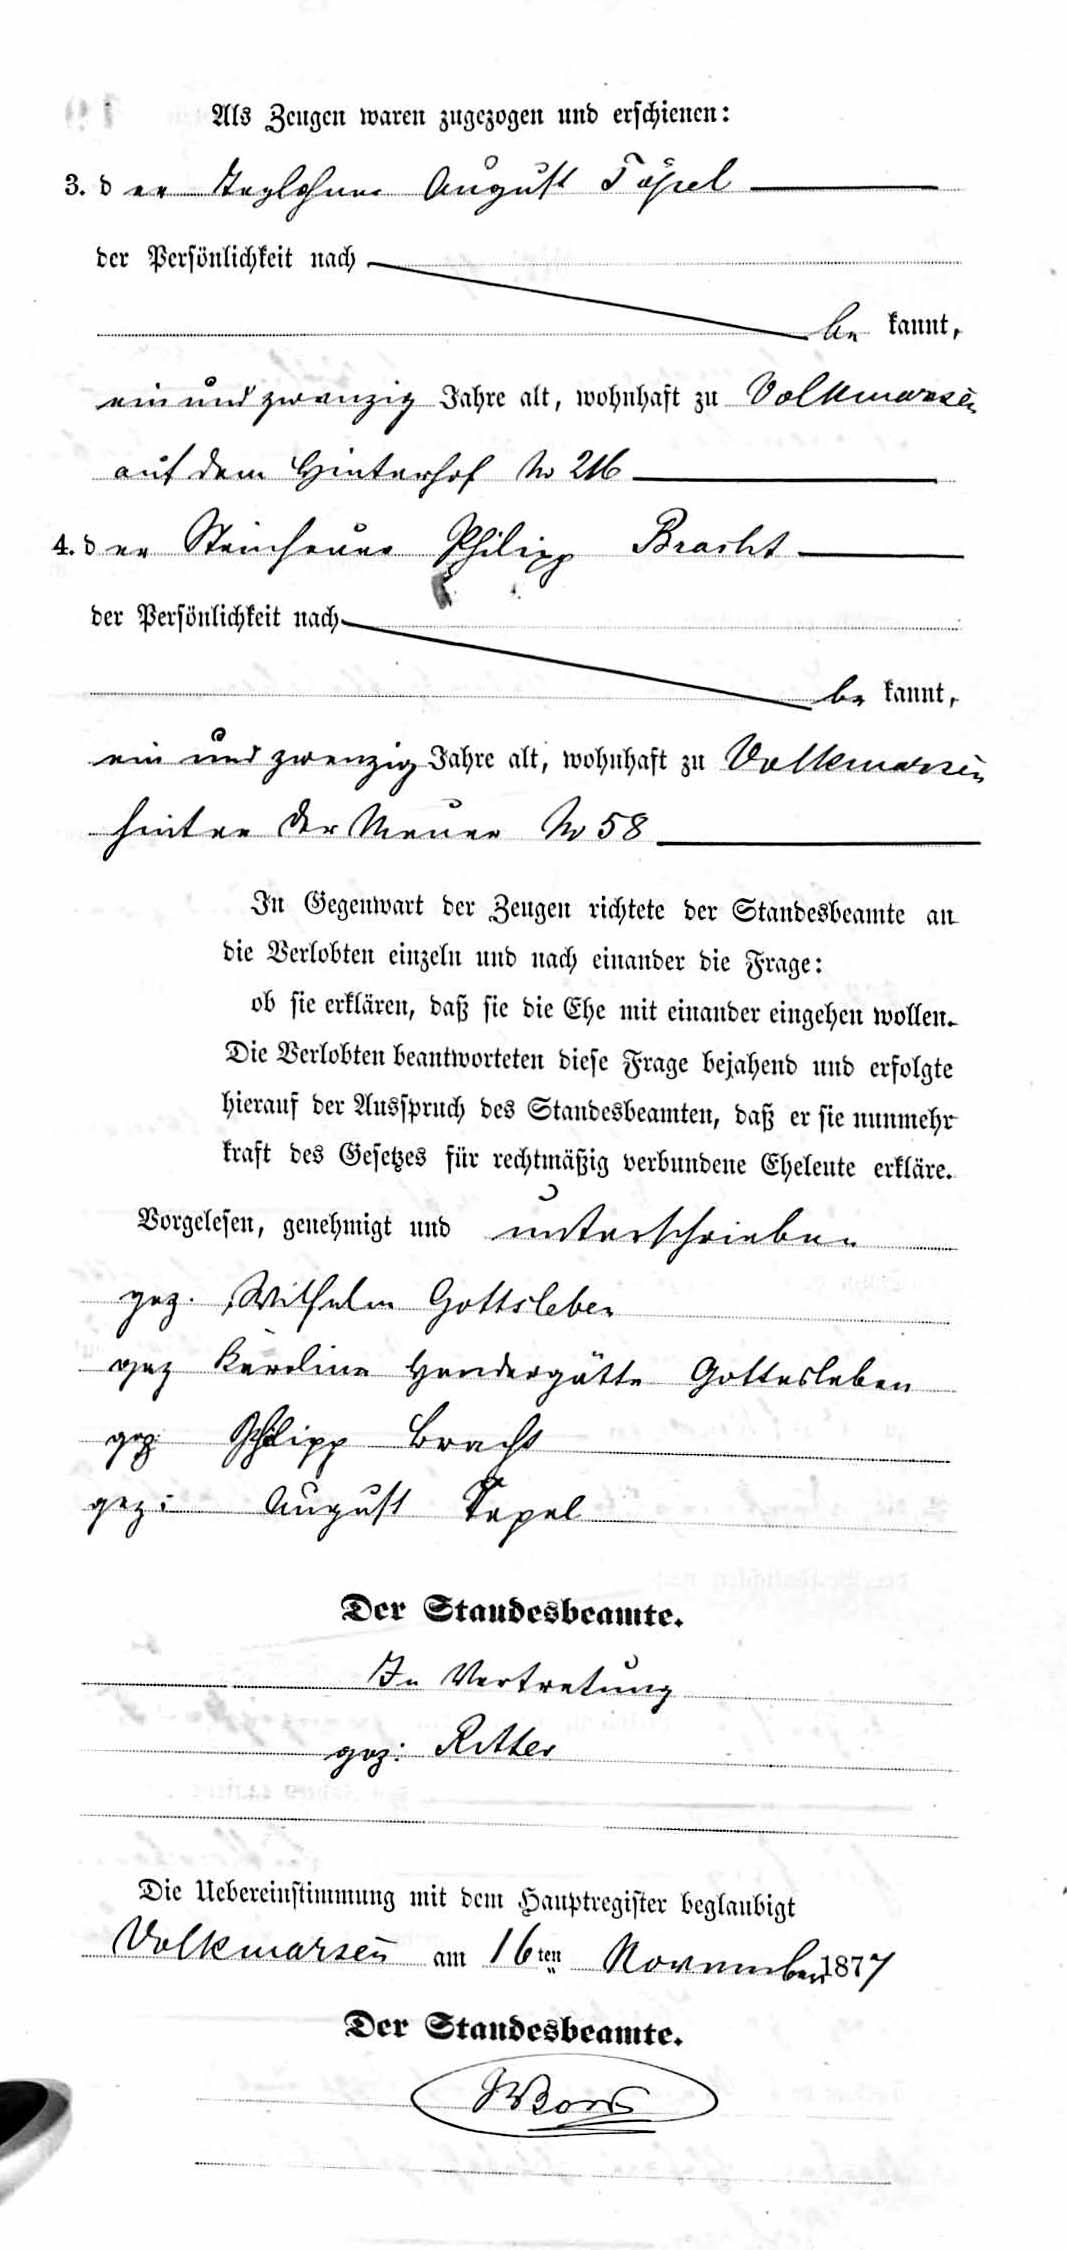 Als Zeugen waren zugezogen und erschienen:
3. der Taglöhner August Täpel
der Persönlichkeit nach
bekannt,
ein und zwanzig Jahre alt, wohnhaft zu Volkmarsen
auf dem Hinterhof No 216
4. der Steinhauer Philipp Bracht
der Persönlichkeit nach
bekannt,
ein und zwanzig Jahre alt, wohnhaft zu Volkmarsen
hinter der Mauer No 58
In Gegenwart der Zeugen richtete der Standesbeamte an
die Verlobten einzeln und nach einander die Frage:
ob sie erklären, daß sie die Ehe mit einander eingehen wollen.
Die Verlobten beantworteten diese Frage bejahend und erfolgte
hierauf der Ausspruch des Standesbeamten, daß er sie nunmehr
kraft des Gesetzes für rechtmäßig verbundene Eheleute erkläre.
Vorgelesen, genehmigt und unterschrieben
gez. Wilhelm Gottsleben
gez Karoline Gottesleben
gez Philipp Bracht
gez: August Tepel
Der Standesbeamte.
In Vertretung
gez: Ritter
Die Uebereinstimmung mit dem Hauptregister beglaubigt
Volkmarsen am 16ten November 1877
Der Standesbeamte.